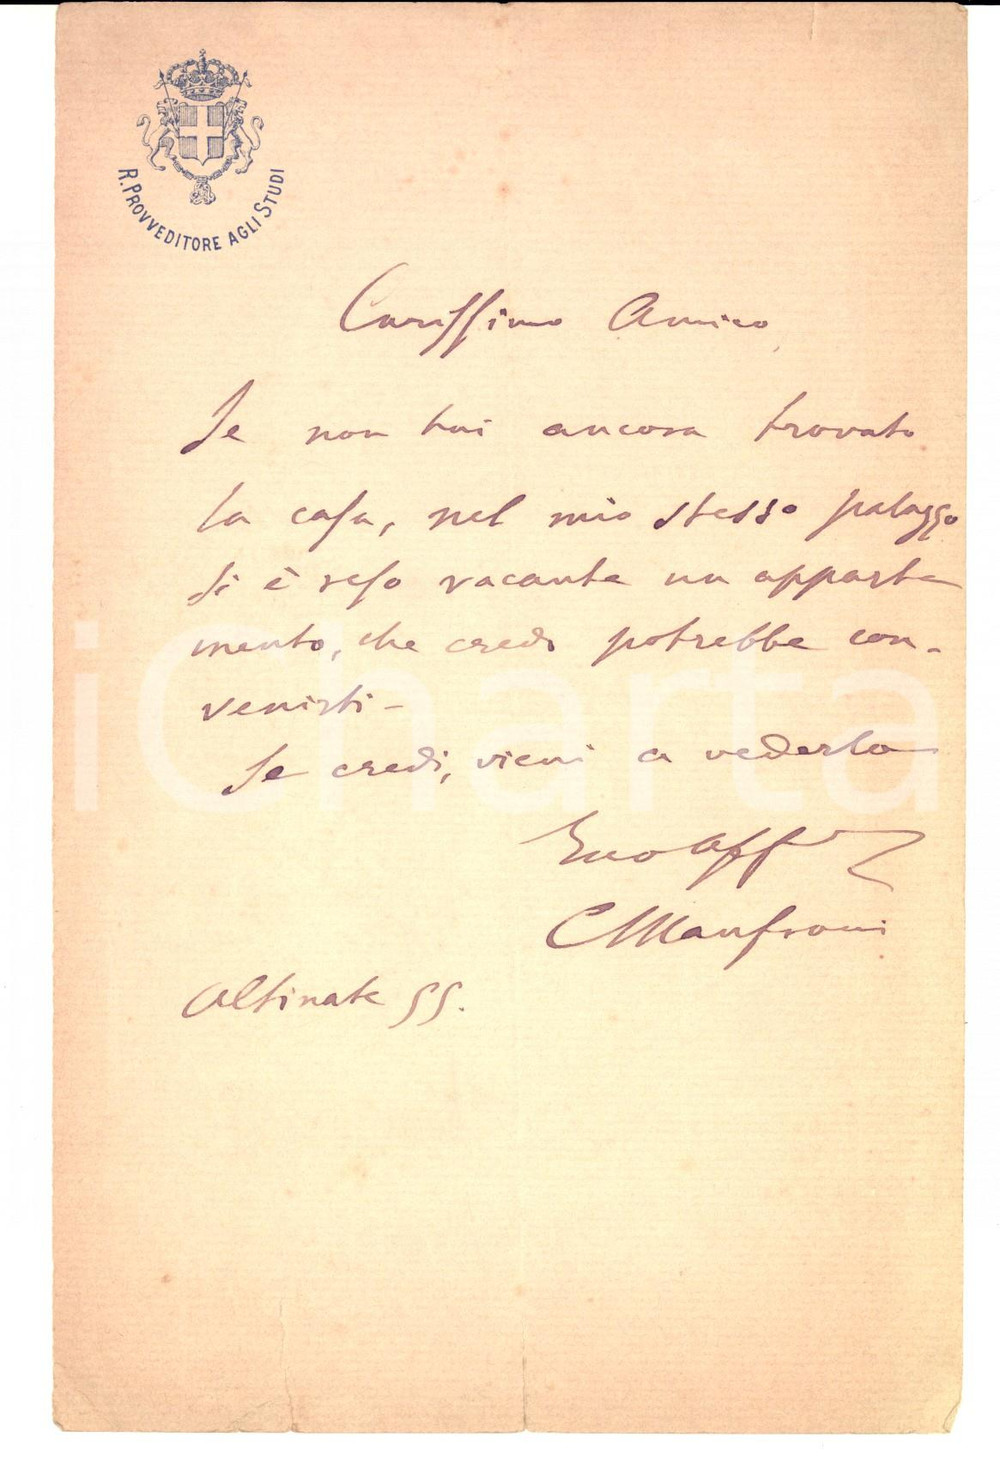 R. PROVVEDITORE AGLI STUDI
Carissimo Amico,
Se non hai ancora trovato
la casa, nel mio stesso palazzo
si è reso vacante un apparta
mento, che credo potrebbe con-
venirti -
Se credi, vieni a vederlo
Tuo aff
C Manfroni
Altinate 55.
iCharta